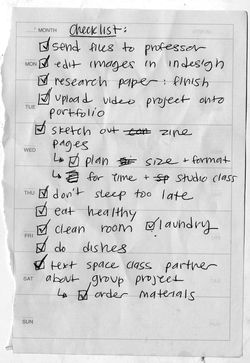 MONTH checklist:
send files to professor
MON edit images in indesign
research paper: finish
upload video project onto
TUE portfolio
sketch out zine
pages
WED
↳ plan size + format
↳ for Time + studio class
THU don't sleep too late
eat healthy
clean room laundry
FRI
do dishes
text space class partner
SAT about group project
↳ order materials
SUN